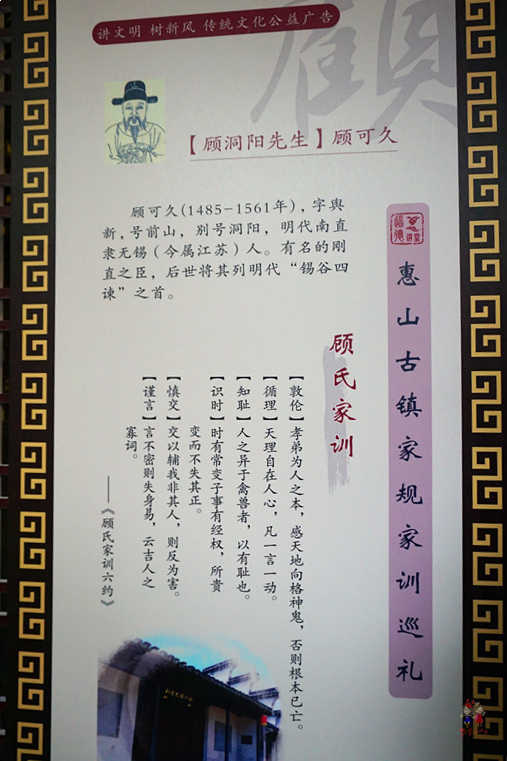 讲文明 树新风 传统文化公益广告
顧
【顾洞阳先生】顾可久
顾可久(1485-1561年),字舆
新,号前山,别号洞阳,明代南直
隶无锡(今属江苏)人。有名的刚
直之臣,后世将其列明代“锡谷四
谏”之首。
惠山古镇家规家训巡礼
顾氏家训
【敦伦】孝弟为人之本,感天地向格神鬼,否则根本已亡。
【循理】天理自在人心,凡一言一动。
【知耻】人之异于禽兽者,以有耻也。
【识时】时有常变子事有经权,所贵
变而不失其正。
【慎交】交以辅我非其人,则反为害。
【谨言】言不密则失身易,云吉人之
寡词。
——《顾氏家训六约》